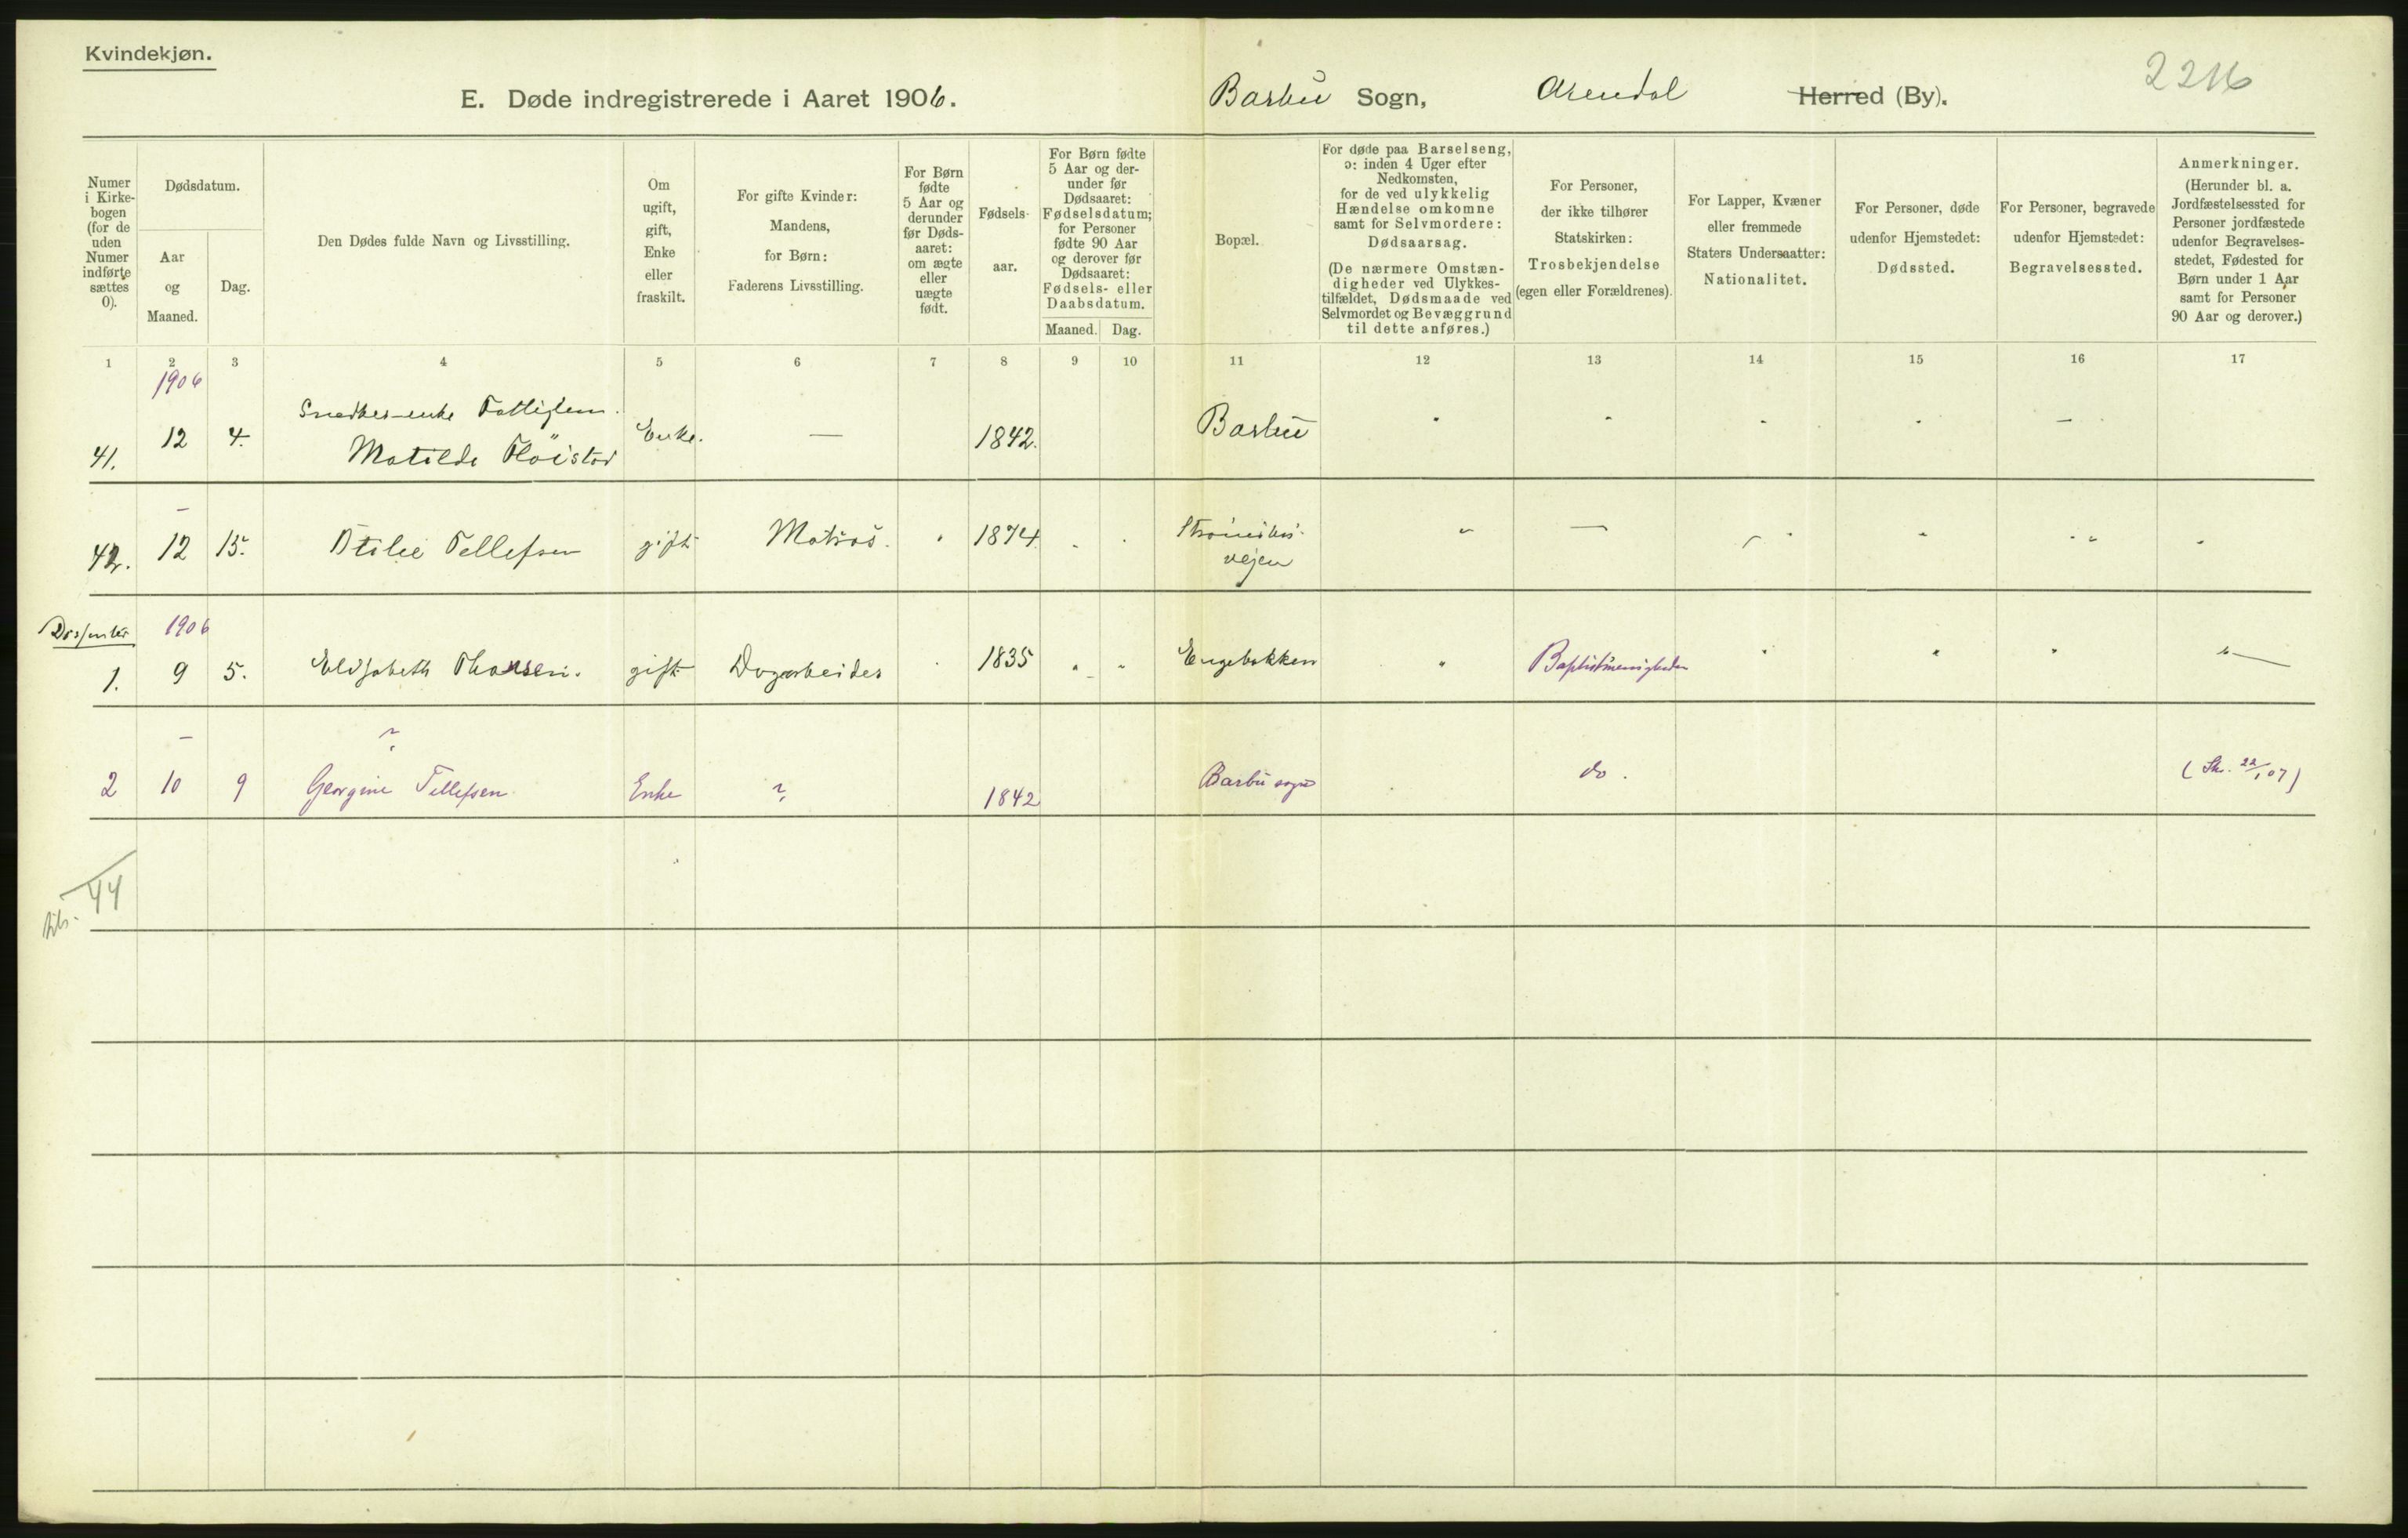 Kvindekjøn.
E. Døde indregistrerede i Aaret 1906.
Barbu Sogn, Arendal Herred (By).
2216
Numer i Kirke-bogen (for de uden Numer indførte sættes 0).
Dødsdatum.
Aar og Maaned.
Dag.
Den Dødes fulde Navn og Livsstilling.
Om ugift, gift, Enke eller fraskilt.
For gifte Kvinder: Mandens, for Børn: Faderens Livsstilling.
For Børn fødte 5 Aar og derunder før Døds-aaret: om ægte eller uægte født.
Fødsels-aar.
For Børn fødte 5 Aar og der-under før Dødsaaret: Fødselsdatum; for Personer fødte 90 Aar og derover før Dødsaaret: Fødsels- eller Daabsdatum.
Maaned. Dag.
Bopæl.
For døde paa Barselseng, ɔ: inden 4 Uger efter Nedkomsten, for de ved ulykkelig Hændelse omkomne samt for Selvmordere: Dødsaarsag.
(De nærmere Omstæn-digheder ved Ulykkes-tilfældet, Dødsmaade ved Selvmordet og Bevæggrund til dette anføres.)
For Personer, der ikke tilhører Statskirken: Trosbekjendelse (egen eller Forældrenes).
For Lapper, Kvæner eller fremmede Staters Undersaatter: Nationalitet.
For Personer, døde udenfor Hjemstedet: Dødssted.
For Personer, begravede udenfor Hjemstedet: Begravelsessted.
Anmerkninger.
(Herunder bl. a. Jordfæstelsessted for Personer jordfæstede udenfor Begravelses-stedet, Fødested for Børn under 1 Aar samt for Personer 90 Aar og derover.)
1 2 3 4 5 6 7 8 9 10 11 12 13 14 15 16 17
1906
Snedker-enke Fattiglem.
41. 12 4. Matilde Fløistad Enke. — 1842. Barbu " " " " —
—
42. 12 15. Otilie Tellefsen gift Matros. " 1874 " " Strømsbu-
vejen
Dissenter 1906
1. 9 5. Elisabeth Thorsen. gift Dagarbeider 1835 " " Engebakken " Baptistmenigheden " " " "
— ?
2 10 9 Georgine Tellefsen Enke ? 1842 Barbu sogn do. (Skr. 22/1 07)
44